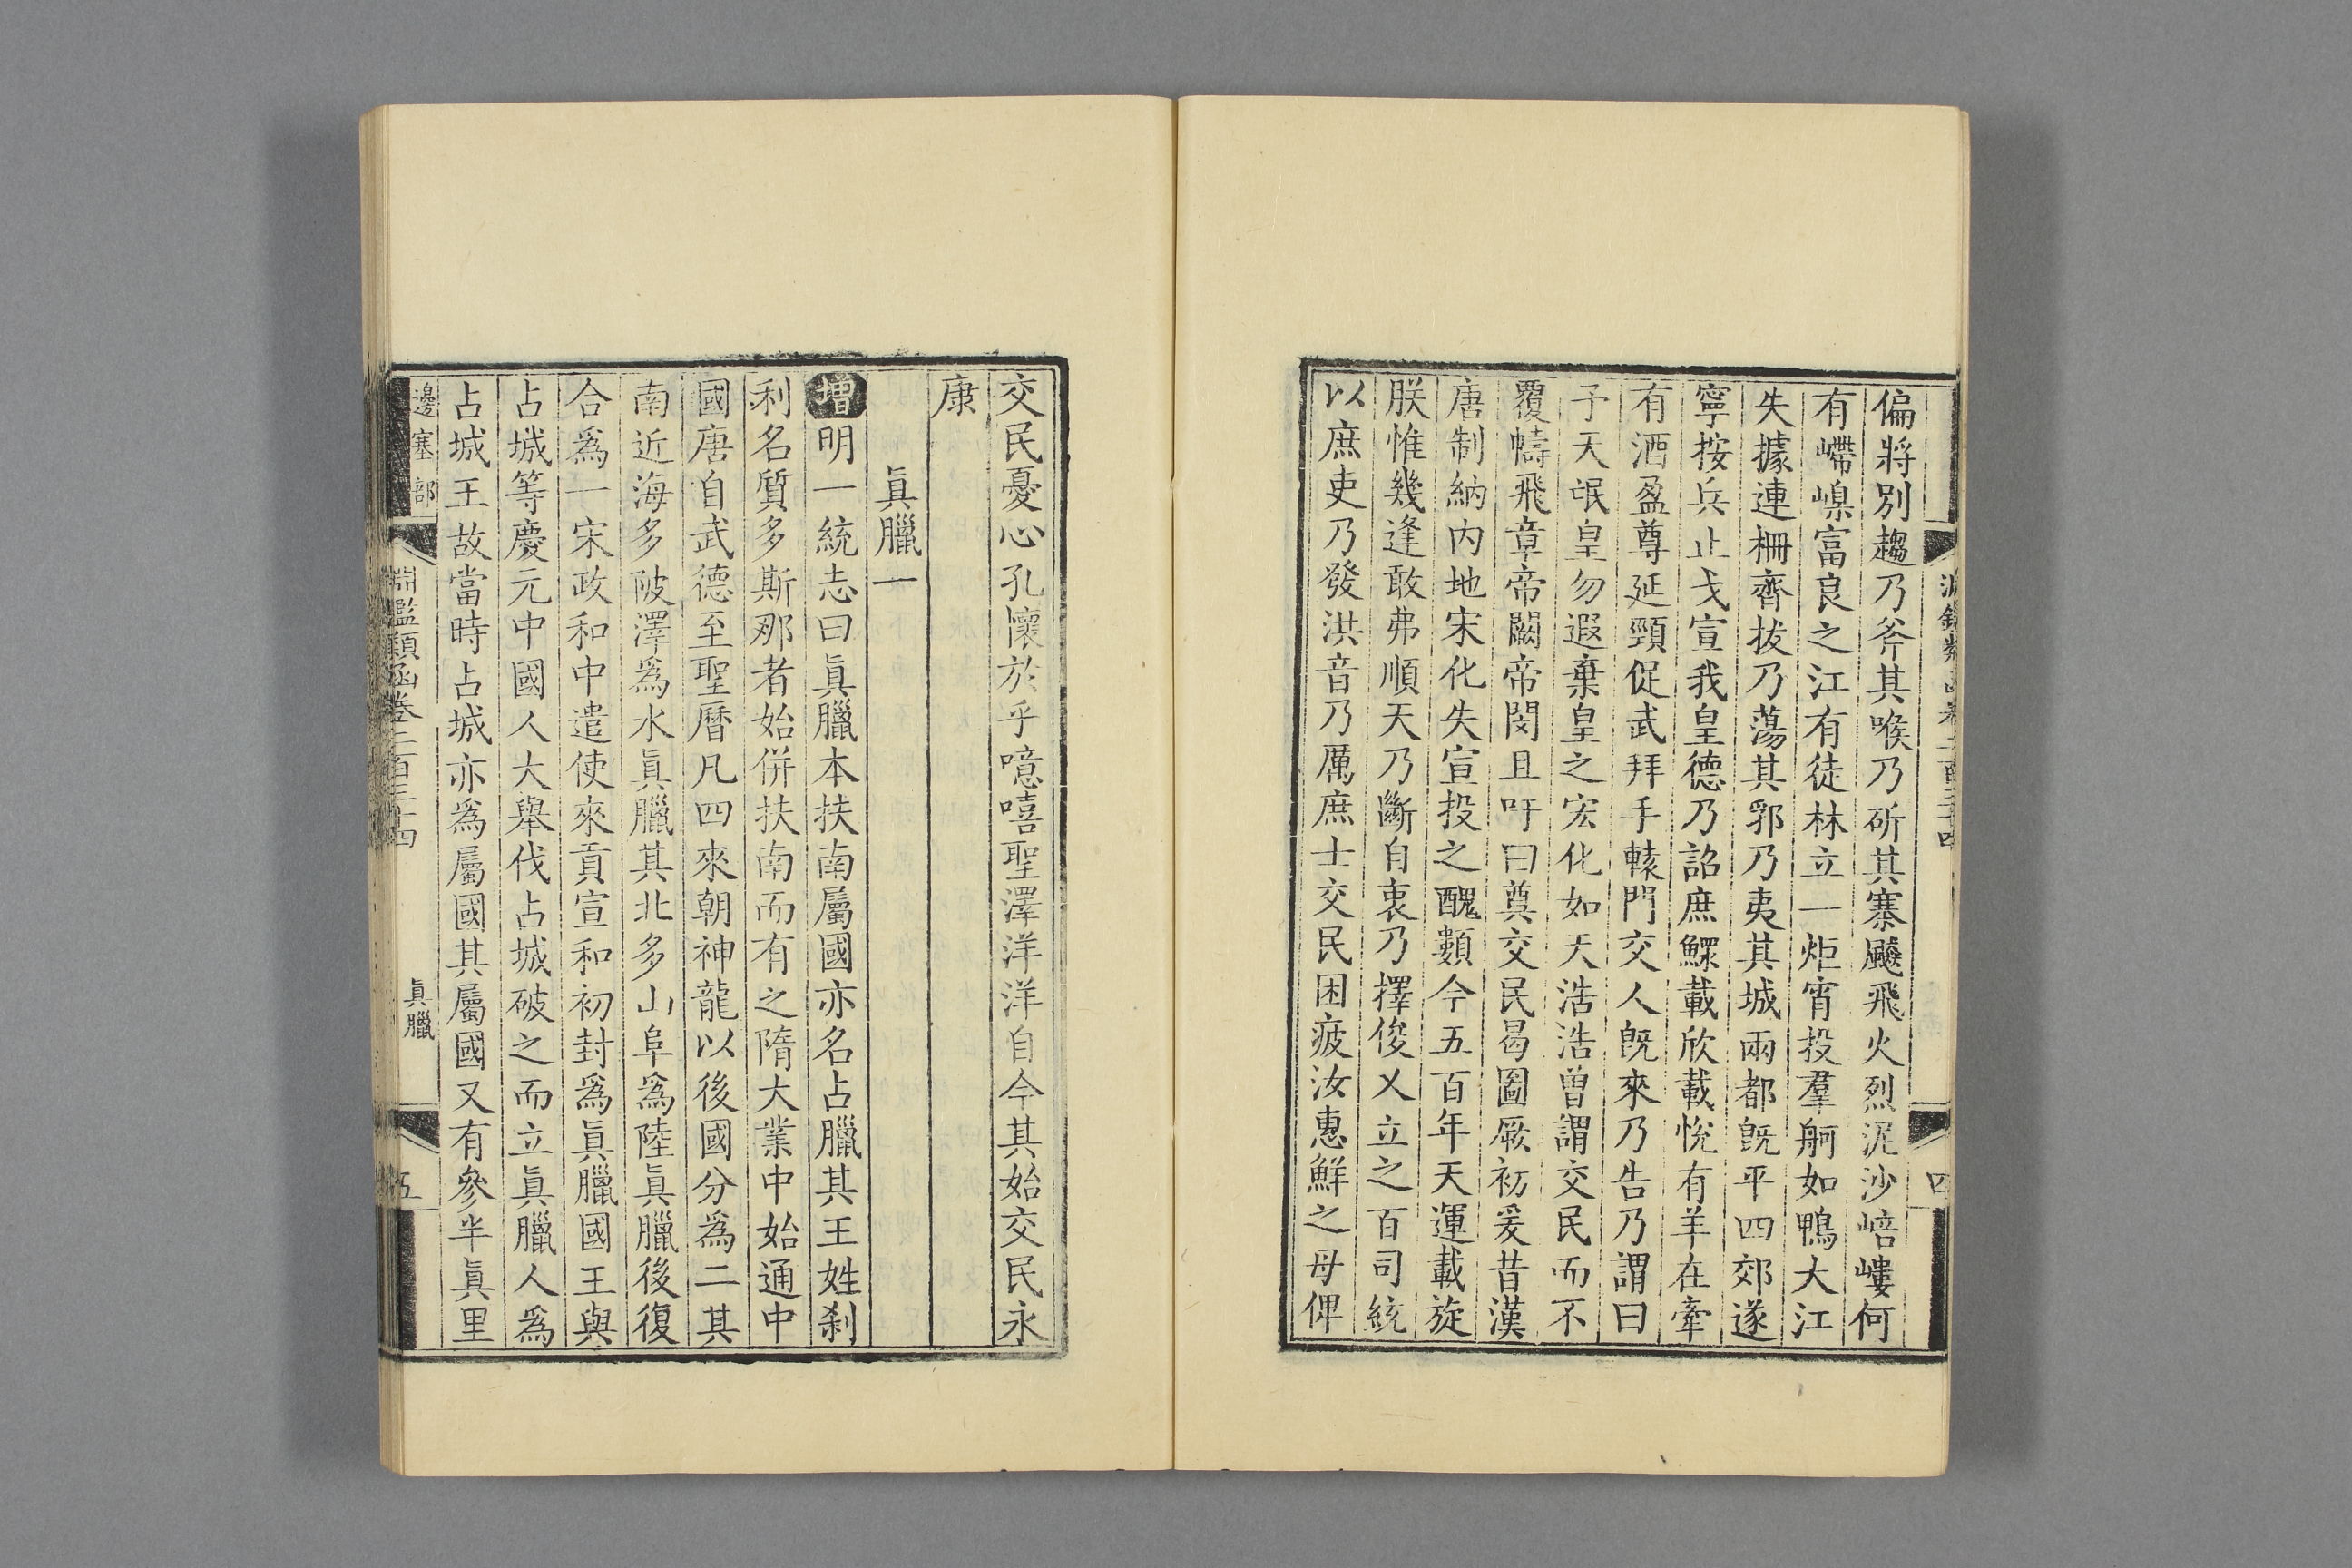 偏將別趨乃斧其喉乃斫其寨飈飛火烈泥沙㟝嶁何
有㠜嵲富良之江有徒林立一炬宵投羣舸如鴨大江
失據連柵齊拔乃蕩其郛乃夷其城兩都旣平四郊遂
寧按兵止戈宣我皇德乃詔庶鰥載欣載悅有羊在牽
有酒盈尊延頸促武拜手轅門交人旣來乃告乃謂曰
予天氓皇勿遐棄皇之宏化如天浩浩曾謂交民而不
覆幬飛章帝闕帝閔且吁曰奠交民曷圖厥初爰昔漢
唐制納内地宋化失宣投之醜類今五百年天運載旋
朕惟幾逢敢弗順天乃斷自衷乃擇俊乂立之百司統
以庶吏乃發洪音乃厲庶士交民困疲汝惠鮮之母俾
四
交民憂心孔懷於乎噫嘻聖澤洋洋自今其始交民永
康
眞臘一
增明一統志曰眞臘本扶南屬國亦名占臘其王姓刹
利名質多斯那者始併扶南而有之隋大業中始通中
國唐自武德至聖曆凡四來朝神龍以後國分爲二其
南近海多陂澤爲水眞臘其北多山阜爲陸眞臘後復
合爲一宋政和中遣使來貢宣和初封爲眞臘國王與
占城等慶元中國人大舉伐占城破之而立眞臘人爲
占城王故當時占城亦爲屬國其屬國又有參半眞里
邊塞部
淵鑑類函卷二百三十四
眞臘
五